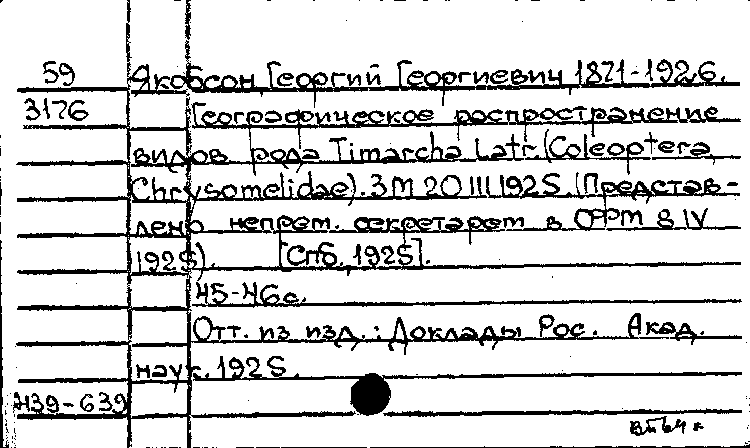 59 Якобсон, Георгий Георгиевич, 1871-1926.
3176 Географическое распространение
видов рода Timarcha Latr. (Coleoptera,
Chrysomelidae). ЗМ 20 III 1925. (Представ-
лено непрем. секретарем в ОФМ 8 IV
1925). [Спб., 1925].
45-46 с.
Отт. из изд.: Доклады Рос. Акад.
наук. 1925.
Н39-639